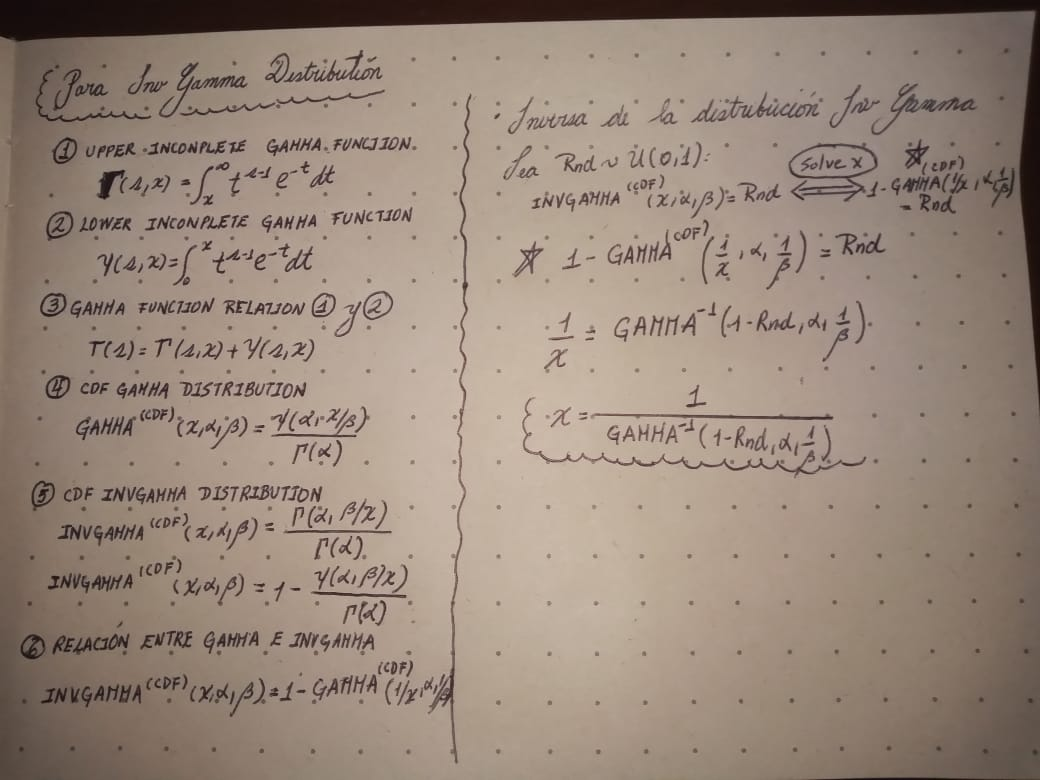 Para Inv Gamma Distribution
① UPPER INCONPLETE GAMMA FUNCTION.
Γ(s,x) = ∫_x^∞ t^{s-1} e^{-t} dt
② LOWER INCOMPLETE GAMMA FUNCTION
γ(s,x) = ∫_0^x t^{s-1} e^{-t} dt
③ GAMMA FUNCTION RELATION ① y ②
Γ(s) = Γ(s,x) + γ(s,x)
④ CDF GAMMA DISTRIBUTION
GAMMA^(CDF) (x,α,β) = γ(α, x/β) / Γ(α)
⑤ CDF INVGAMMA DISTRIBUTION
INVGAMMA^(CDF) (x,α,β) = Γ(α, β/x) / Γ(α)
INVGAMMA^(CDF) (x,α,β) = 1 - γ(α, β/x) / Γ(α)
⑥ RELACIÓN ENTRE GAMMA E INVGAMMA
INVGAMMA^(CDF) (x,α,β) = 1 - GAMMA^(CDF) (1/x, α, 1/β)
· Inversa de la distribución Inv Gamma
Sea Rnd ~ U(0,1):
INVGAMMA^(CDF) (x,α,β) = Rnd ⟺ Solve x ☆ 1 - GAMMA^(CDF) (1/x, α, 1/β)
= Rnd
☆ 1 - GAMMA^(CDF) (1/x, α, 1/β) = Rnd
1/x = GAMMA^{-1} (1-Rnd, α, 1/β).
x = 1 / GAMMA^{-1} (1-Rnd, α, 1/β)